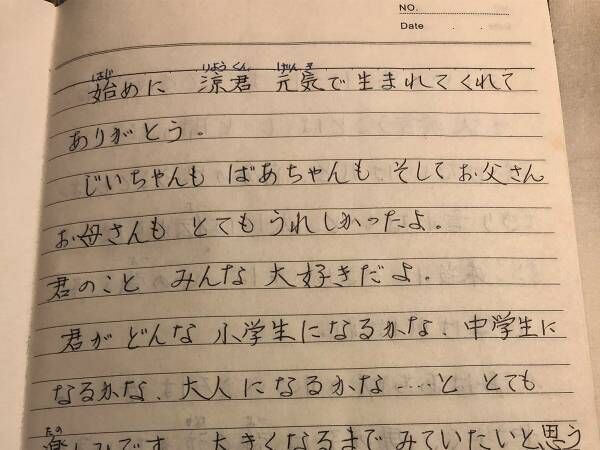 NO.
Date . .
始めに 涼君 元気で生まれてくれて
ありがとう。
じいちゃんも ばあちゃんも そしてお父さん
お母さんも とても うれしかったよ。
君のこと みんな 大好きだよ。
君が どんな 小学生になるかな、中学生に
なるかな、大人になるかな……と とても
楽しみです。大きくなるまで みていたいと思う